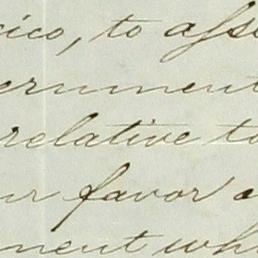 ico, to ass
ernment
relative to
ur favor
ment wh